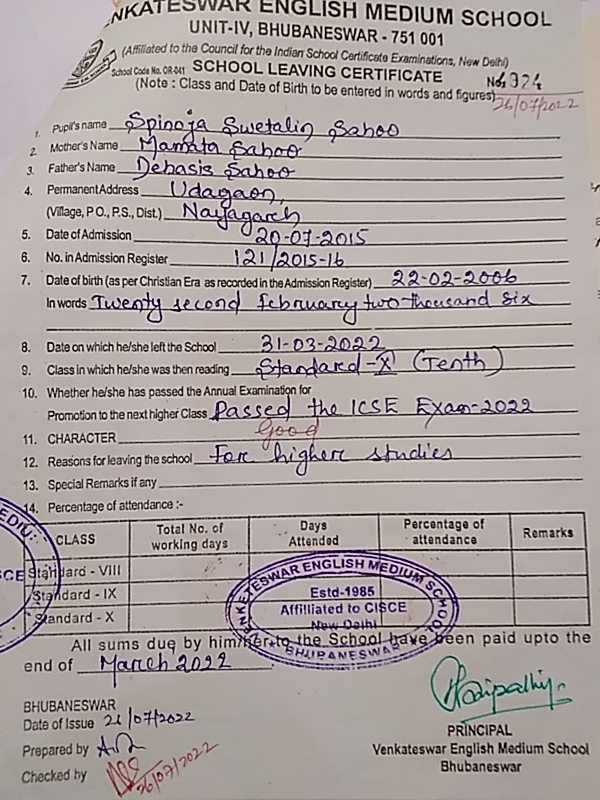 VENKATESWAR ENGLISH MEDIUM SCHOOL
UNIT-IV, BHUBANESWAR - 751 001
(Affiliated to the Council for the Indian School Certificate Examinations, New Delhi)
School Code No. OR-041 SCHOOL LEAVING CERTIFICATE No. 4324
(Note : Class and Date of Birth to be entered in words and figures)
26/07/2022
1. Pupil's name Spinoja Swetalin Sahoo
2. Mother's Name Mamata Sahoo
3. Father's Name Debasis Sahoo
4. Permanent Address Udagaon,
(Village, P.O., P.S., Dist.) Nayagarh
5. Date of Admission 20-07-2015
6. No. in Admission Register 121/2015-16
7. Date of birth (as per Christian Era as recorded in the Admission Register) 22-02-2006
In words Twenty second february two thousand six
8. Date on which he/she left the School 31-03-2022
9. Class in which he/she was then reading Standard-X (Tenth)
10. Whether he/she has passed the Annual Examination for
Promotion to the next higher Class Passed the ICSE Exam-2022
11. CHARACTER Good
12. Reasons for leaving the school For higher studies
13. Special Remarks if any
14. Percentage of attendance :-
CLASS Total No. of working days Days Attended Percentage of attendance Remarks
Standard - VIII
Standard - IX
Standard - X
VENKATESWAR ENGLISH MEDIUM SCHOOL
Estd-1985
Affilliated to CISCE
New Delhi
BHUBANESWAR
All sums due by him/her to the School have been paid upto the
end of March 2022
BHUBANESWAR
Date of Issue 26/07/2022
Prepared by
Checked by 26/07/2022
PRINCIPAL
Venkateswar English Medium School
Bhubaneswar